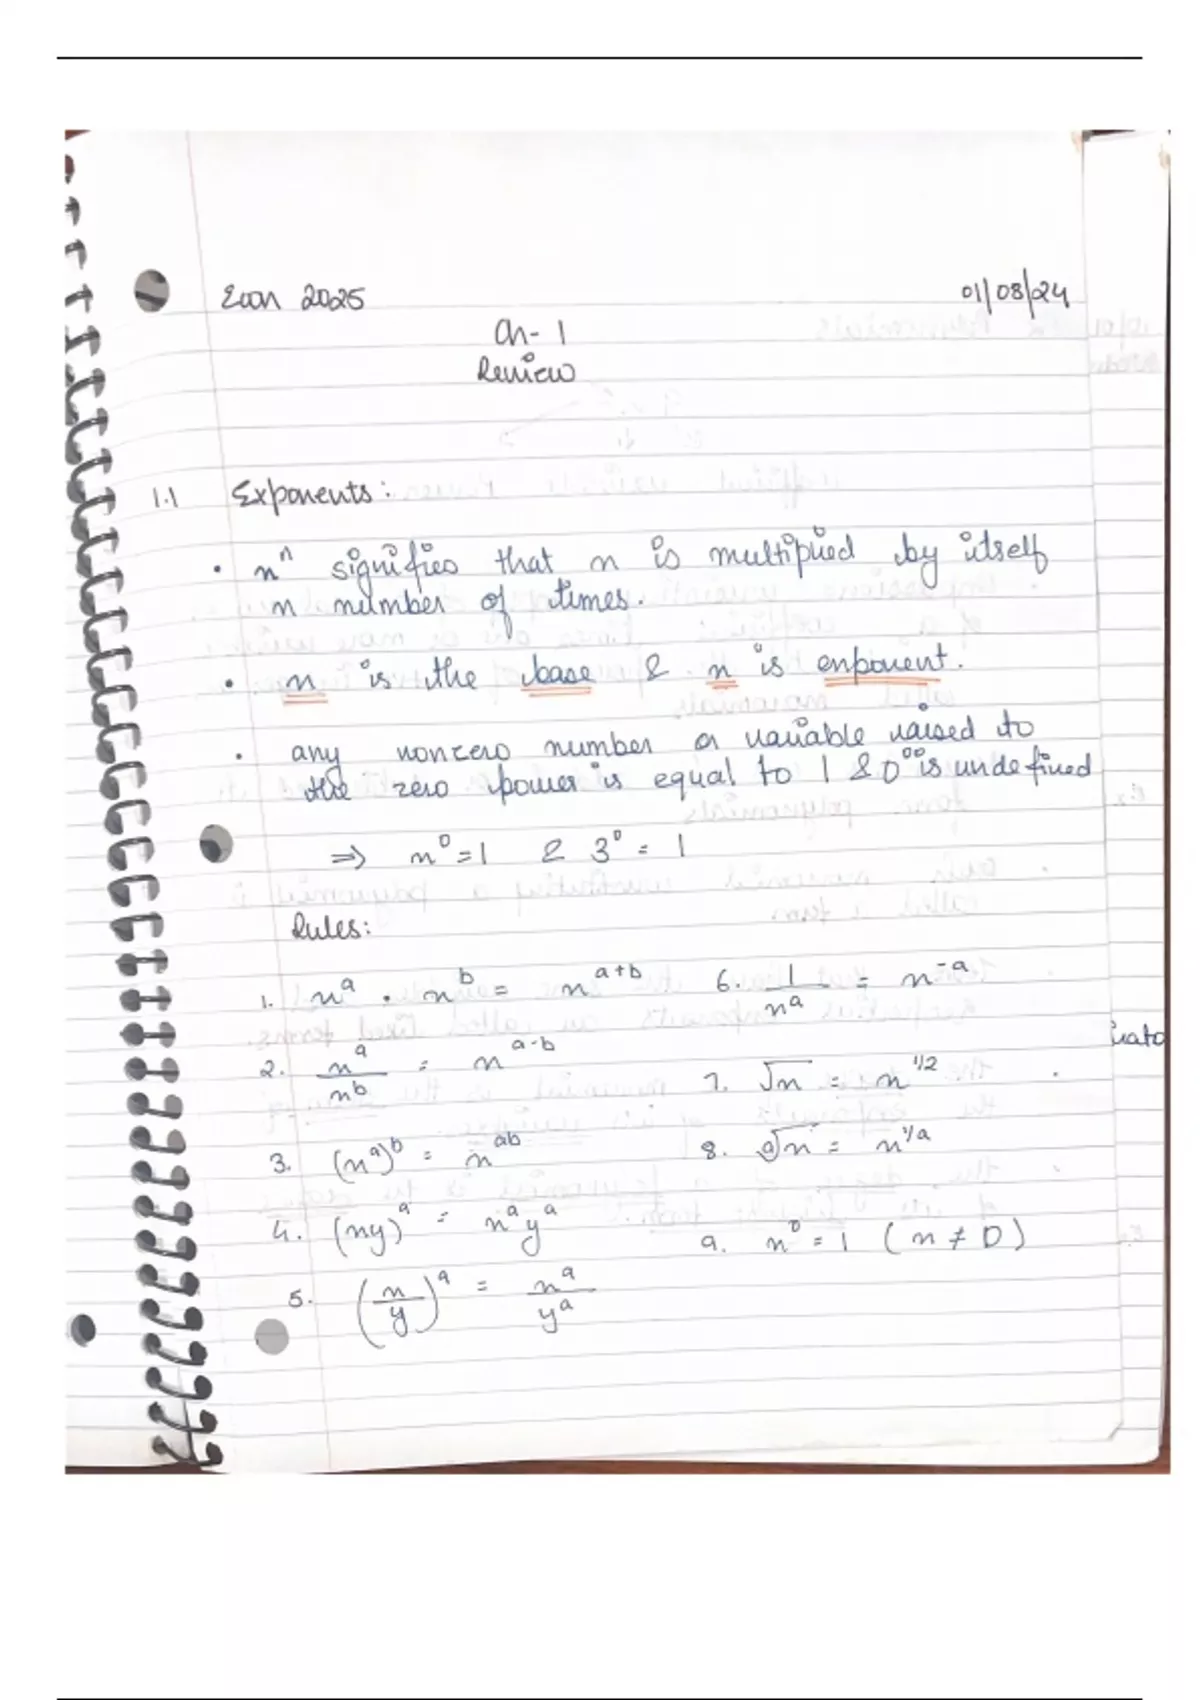 Econ 2025
01/08/24
Ch- 1
Review
1.1 Exponents:
• xⁿ signifies that x is multiplied by itself
n number of times.
• x is the base & n is exponent.
• any nonzero number or variable raised to
the zero power is equal to 1 & 0⁰ is undefined
⇒ x⁰ = 1 & 3⁰ = 1
Rules:
1. xᵃ · xᵇ = xᵃ⁺ᵇ
2. xᵃ/xᵇ = xᵃ⁻ᵇ
3. (xᵃ)ᵇ = xᵃᵇ
4. (xy)ᵃ = xᵃyᵃ
5. (x/y)ᵃ = xᵃ/yᵃ
6. 1/xᵃ = x⁻ᵃ
7. √x = x^1/2
8. ᵃ√x = x^1/a
9. x⁰ = 1 (x ≠ 0)